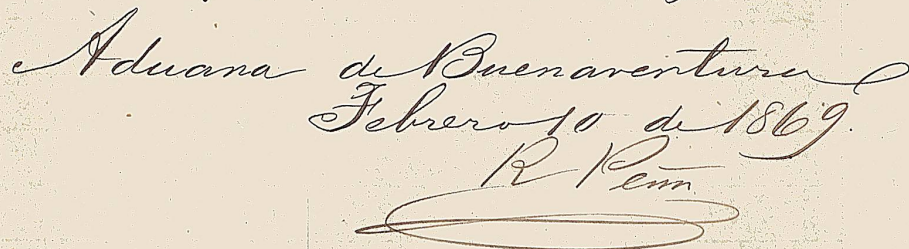 Aduana de Buenaventura
Febrero 10 de 1869.
R Peña